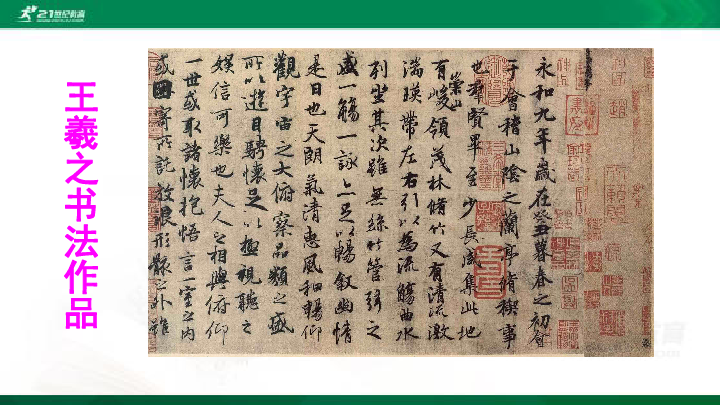 21世纪教育
王羲之书法作品
永和九年歲在癸丑暮春之初會
于會稽山陰之蘭亭脩禊事
也羣賢畢至少長咸集此地
有崇山峻領茂林脩竹又有清流激
湍暎帶左右引以為流觴曲水
列坐其次雖無絲竹管弦之
盛一觴一詠亦足以暢敘幽情
是日也天朗氣清惠風和暢仰
觀宇宙之大俯察品類之盛
所以遊目騁懷足以極視聽之
娛信可樂也夫人之相與俯仰
一世或取諸懷抱悟言一室之內
或因寄所託放浪形骸之外雖